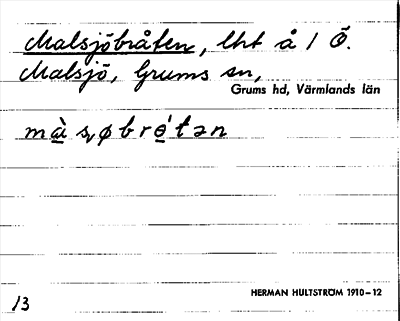 Malsjöbråten, lht å 1 Ö.
Malsjö, Grums sn,
Grums hd, Värmlands län
mà sⱴøbrǿtən
HERMAN HULTSTRÖM 1910–12
13